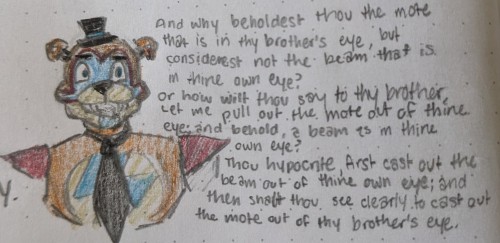 And why beholdest thou the mote
that is in thy brother's eye, but
considerest not the beam that is
in thine own eye?
Or how wilt thou say to thy brother,
Let me pull out the mote out of thine
eye; and behold, a beam is in thine
own eye?
Thou hypocrite, first cast out the
beam out of thine own eye; and
then shalt thou see clearly to cast out
the mote out of thy brother's eye.